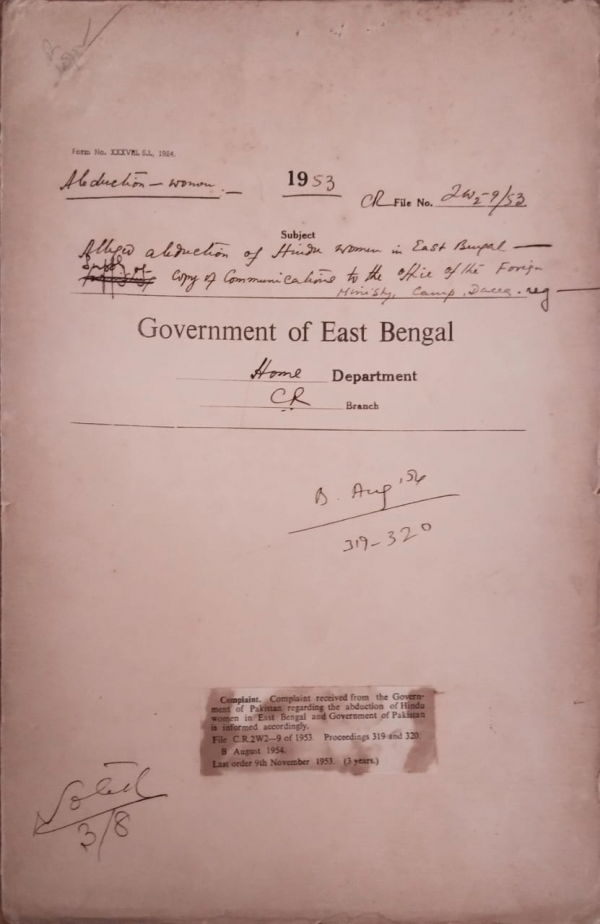 Form No. XXXVRL S.L, 1924.
Abduction – women. –
1953
CR File No. 2W2-9/53
Subject
Alleged abduction of Hindu women in East Bengal —
Supply of Copy of Communications to the office of the Foreign
Ministry, Camp, Dacca. reg —
Government of East Bengal
Home Department
CR Branch
B. Aug '54
319-320
Complaint. Complaint received from the Govern-
ment of Pakistan regarding the abduction of Hindu
women in East Bengal and Government of Pakistan
is informed accordingly.
File C.R.2W2—9 of 1953. Proceedings 319 and 320.
B August 1954.
Last order 9th November 1953. (3 years.)
3/8